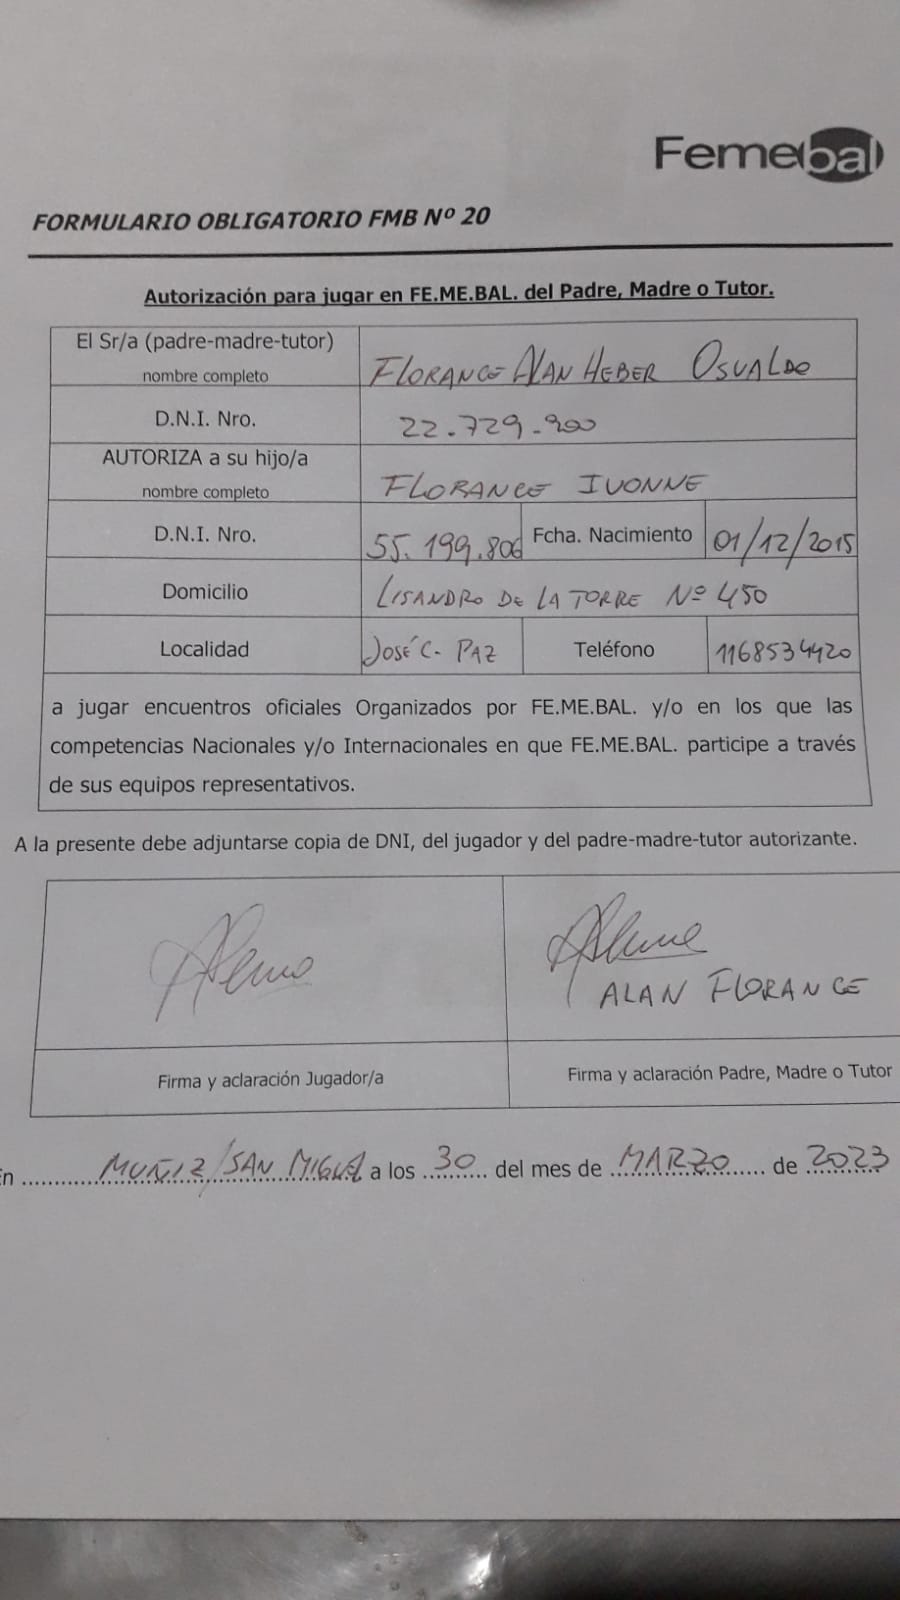 Femebal
FORMULARIO OBLIGATORIO FMB Nº 20
Autorización para jugar en FE.ME.BAL. del Padre, Madre o Tutor.
El Sr/a (padre-madre-tutor)
nombre completo
FLORANCE ALAN HEBER OSVALDO
D.N.I. Nro. 22.729.900
AUTORIZA a su hijo/a
nombre completo
FLORANCE IVONNE
D.N.I. Nro. 55.199.806 Fcha. Nacimiento 01/12/2015
Domicilio LISANDRO DE LA TORRE Nº 450
Localidad JOSÉ C. PAZ Teléfono 1168534420
a jugar encuentros oficiales Organizados por FE.ME.BAL. y/o en los que las
competencias Nacionales y/o Internacionales en que FE.ME.BAL. participe a través
de sus equipos representativos.
A la presente debe adjuntarse copia de DNI, del jugador y del padre-madre-tutor autorizante.
ALAN FLORANCE
Firma y aclaración Jugador/a Firma y aclaración Padre, Madre o Tutor
En MUÑIZ/SAN MIGUEL a los 30 del mes de MARZO de 2023